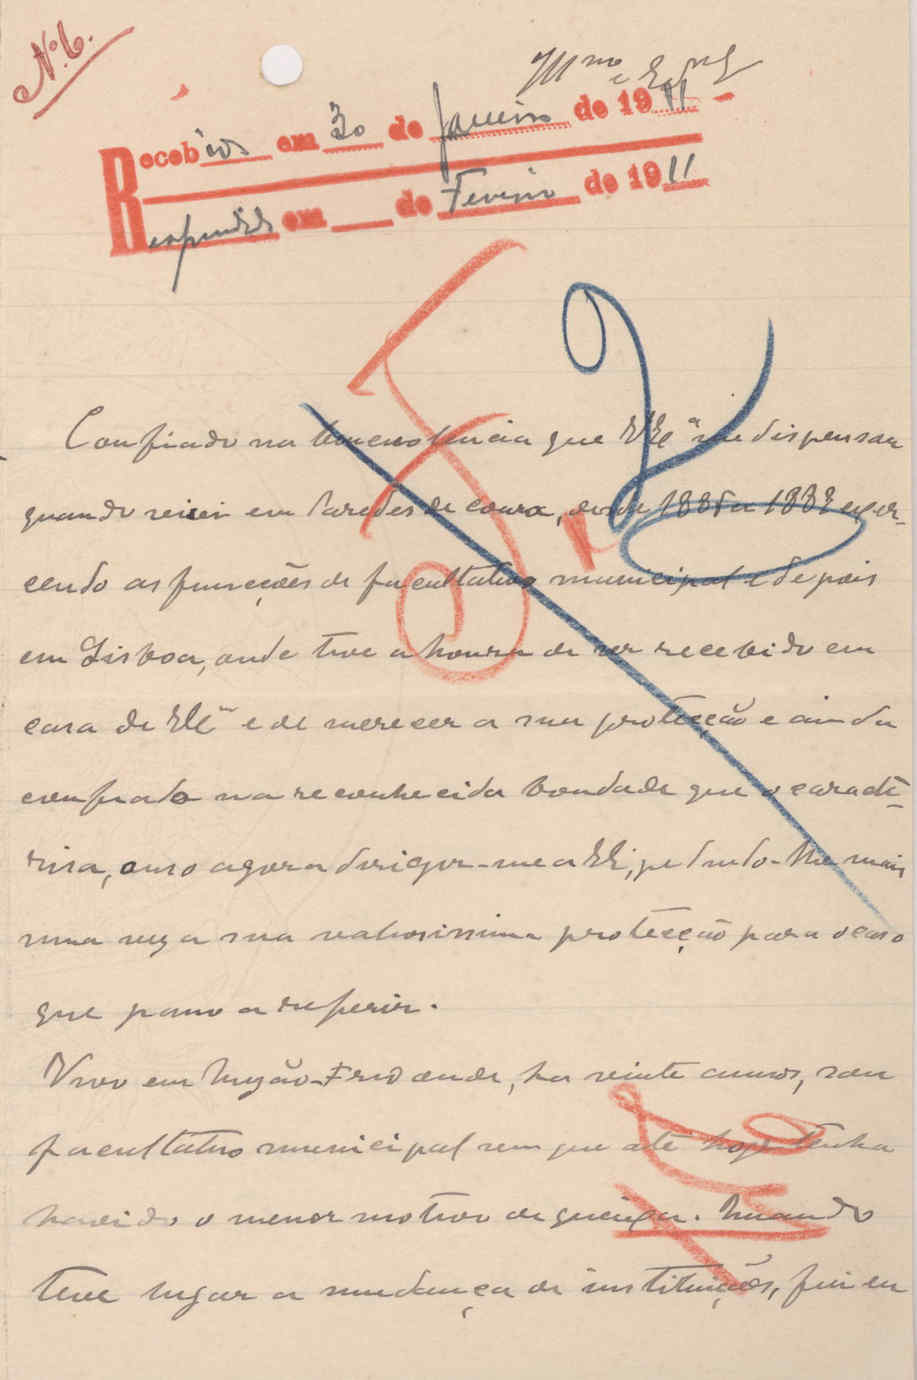 N.º 6.
Illmo e Exmo
Recebida em 30 de Janeiro de 1911
Respondida em de Fevereiro de 1911
Confiado na benevolencia que V. Ex.ª me dispensou
quando reuni em Paredes de Coura, desde 1885 a 1888 exer-
cendo as funcções de facultativo municipal e depois
em Lisboa, onde tive a honra de ser recebido em
casa de V. Ex.ª e de merecer a sua protecção e ainda
confiado na reconhecida bondade que o caracte-
risa, ouso agora dirigir-me a V. Ex.ª, pedindo-lhe mais
uma vez a sua valiosissima protecção para o caso
que passo a referir.
Vivo em Mezão-Frio onde, ha vinte annos, sou
facultativo municipal sem que até hoje tenha
havido o menor motivo de queixa. Quando
teve lugar a mudança de instituições, fui eu